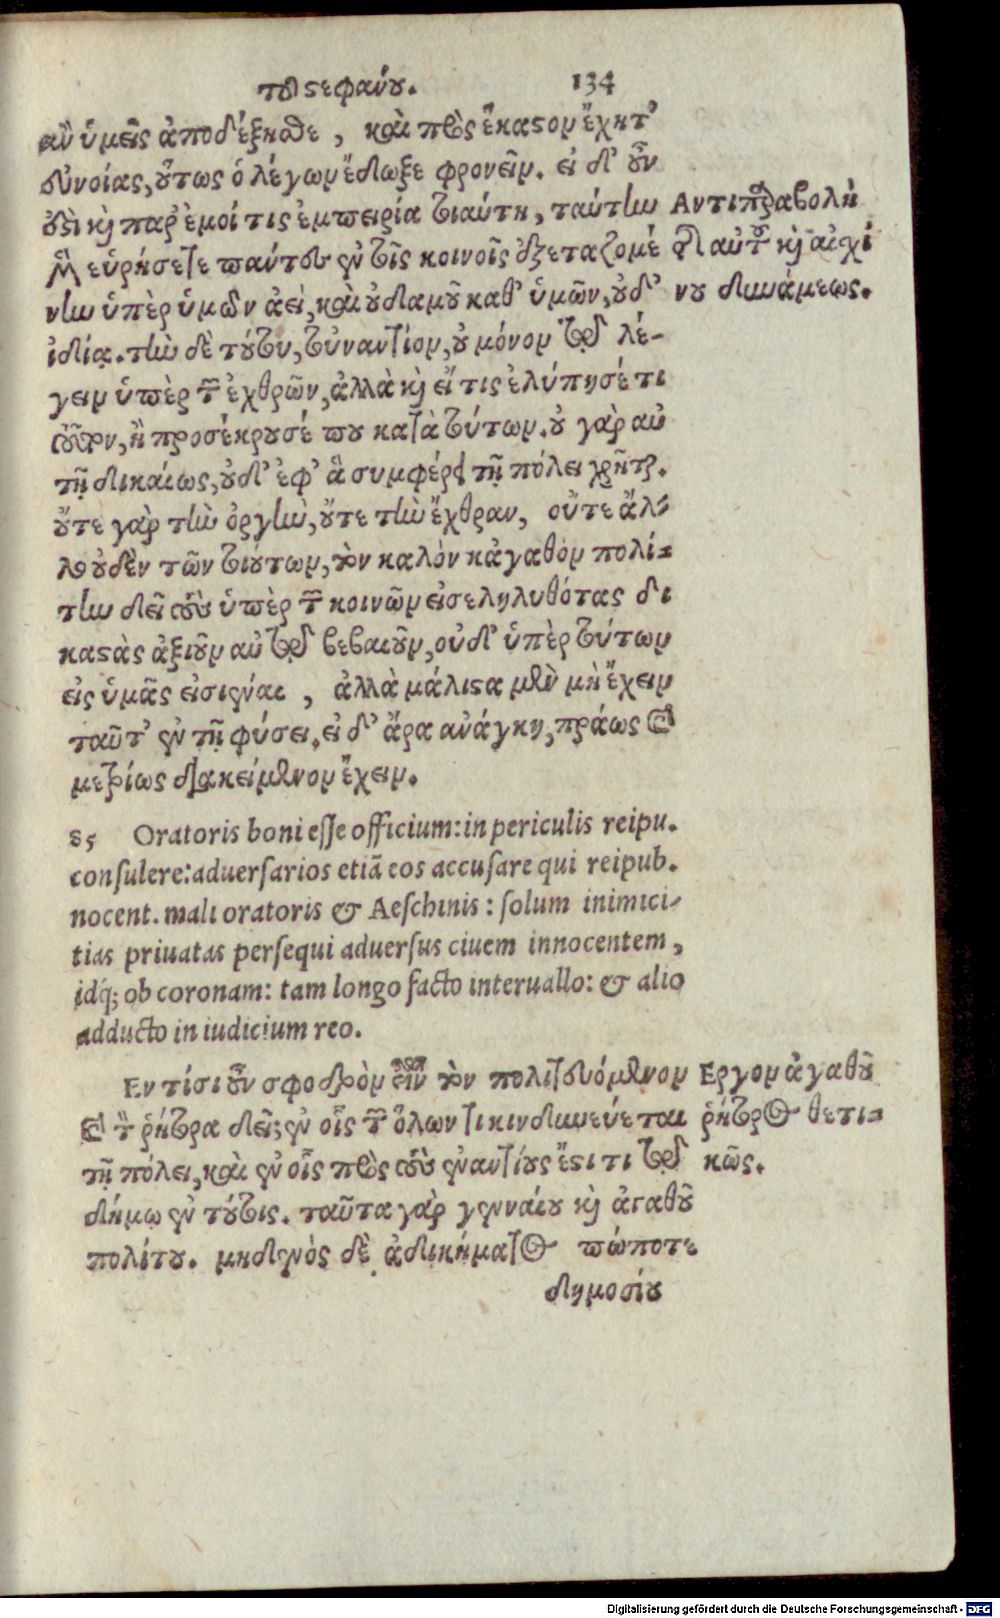 τοῦ στεφάνου. 134
ἂν ὑμεῖς ἀποδέξησθε, καὶ πρὸς ἕκαστον ἔχητ'
εὐνοίας, οὕτως ὁ λέγων ἔδοξε φρονεῖν. εἰ δ' οὖν
ἐστὶ καὶ παρ' ἐμοί τις ἐμπειρία τοιαύτη, ταύτην
μὲν εὑρήσετε πάντες ἐν τοῖς κοινοῖς ἐξεταζομέ
νην ὑπὲρ ὑμῶν ἀεὶ, καὶ οὐδαμοῦ καθ' ὑμῶν, οὐδ'
ἰδίᾳ. τὴν δὲ τούτου, τοὐναντίον, οὐ μόνον τῷ λέ-
γειν ὑπὲρ τῶν ἐχθρῶν, ἀλλὰ καὶ εἴ τις ἐλύπησέ τι
τοῦτον, ἢ προσέκρουσέ που κατὰ τούτων. οὐ γὰρ αὐ
τῇ δικαίως, οὐδ' ἐφ' ἃ συμφέρει τῇ πόλει χρῆται.
οὔτε γὰρ τὴν ὀργὴν, οὔτε τὴν ἔχθραν, οὔτε ἄλ-
λο οὐδὲν τῶν τοιούτων, τὸν καλὸν κἀγαθὸν πολί-
την δεῖ τοὺς ὑπὲρ τῶν κοινῶν εἰσεληλυθότας δι
καστὰς ἀξιοῦν αὐτῷ βεβαιοῦν, οὐδ' ὑπὲρ τούτων
εἰς ὑμᾶς εἰσιέναι, ἀλλὰ μάλιστα μὲν μὴ ἔχειν
ταῦτ' ἐν τῇ φύσει. εἰ δ' ἄρα ἀνάγκη, πράως καὶ
μετρίως διακείμενον ἔχειν.
Αντιπαραβολὴ
τῆς αὐτοῦ καὶ αἰσχί
νου δυνάμεως.
85 Oratoris boni esse officium: in periculis reipu.
consulere: aduersarios etiã eos accusare qui reipub.
nocent. mali oratoris & Aeschinis: solum inimici-
tias priuatas persequi aduersus ciuem innocentem,
idq́; ob coronam: tam longo facto interuallo: & alio
adducto in iudicium reo.
Εν τίσι οὖν σφοδρὸν εἶναι τὸν πολιτευόμενον
καὶ τὸν ῥήτορα δεῖ; ἐν οἷς τῶν ὅλων τι κινδυνεύεται
τῇ πόλει, καὶ ἐν οἷς πρὸς τοὺς ἐναντίους ἔστι τι τῷ
δήμῳ ἐν τούτοις. ταῦτα γὰρ γενναίου καὶ ἀγαθοῦ
πολίτου. μηδενὸς δὲ ἀδικήματος πώποτε
δημοσίου
Εργον ἀγαθοῦ
ῥήτορος θετι-
κῶς.
Digitalisierung gefördert durch die Deutsche Forschungsgemeinschaft - DFG